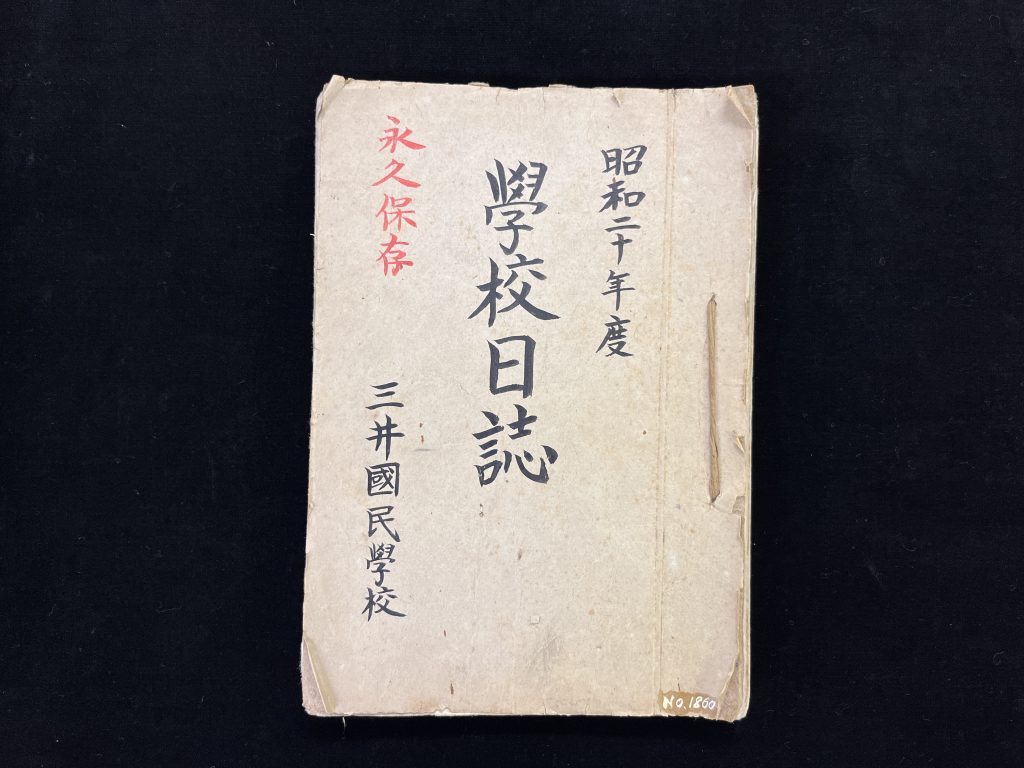 昭和二十年度
學校日誌
永久保存
三井國民學校
NO.1860